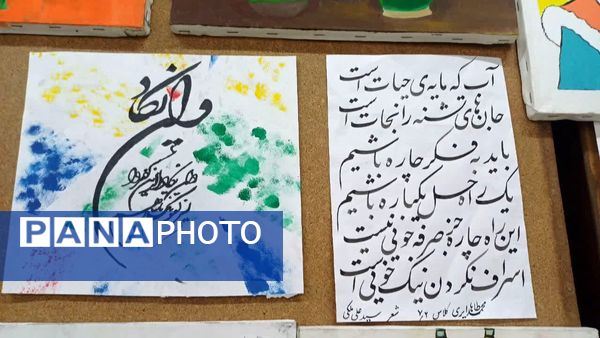 وان یکاد
PANAPHOTO
آب که مایه‌ی حیات است
جان‌های تشنه را نجات است
باید به فکر چاره باشیم
یک راه حل یکباره باشیم
این راه چاره جز صرفه‌جویی نیست
اسراف نکردن نیک خویی است
کلاس ۷/۲ شعر سید علی ملکی